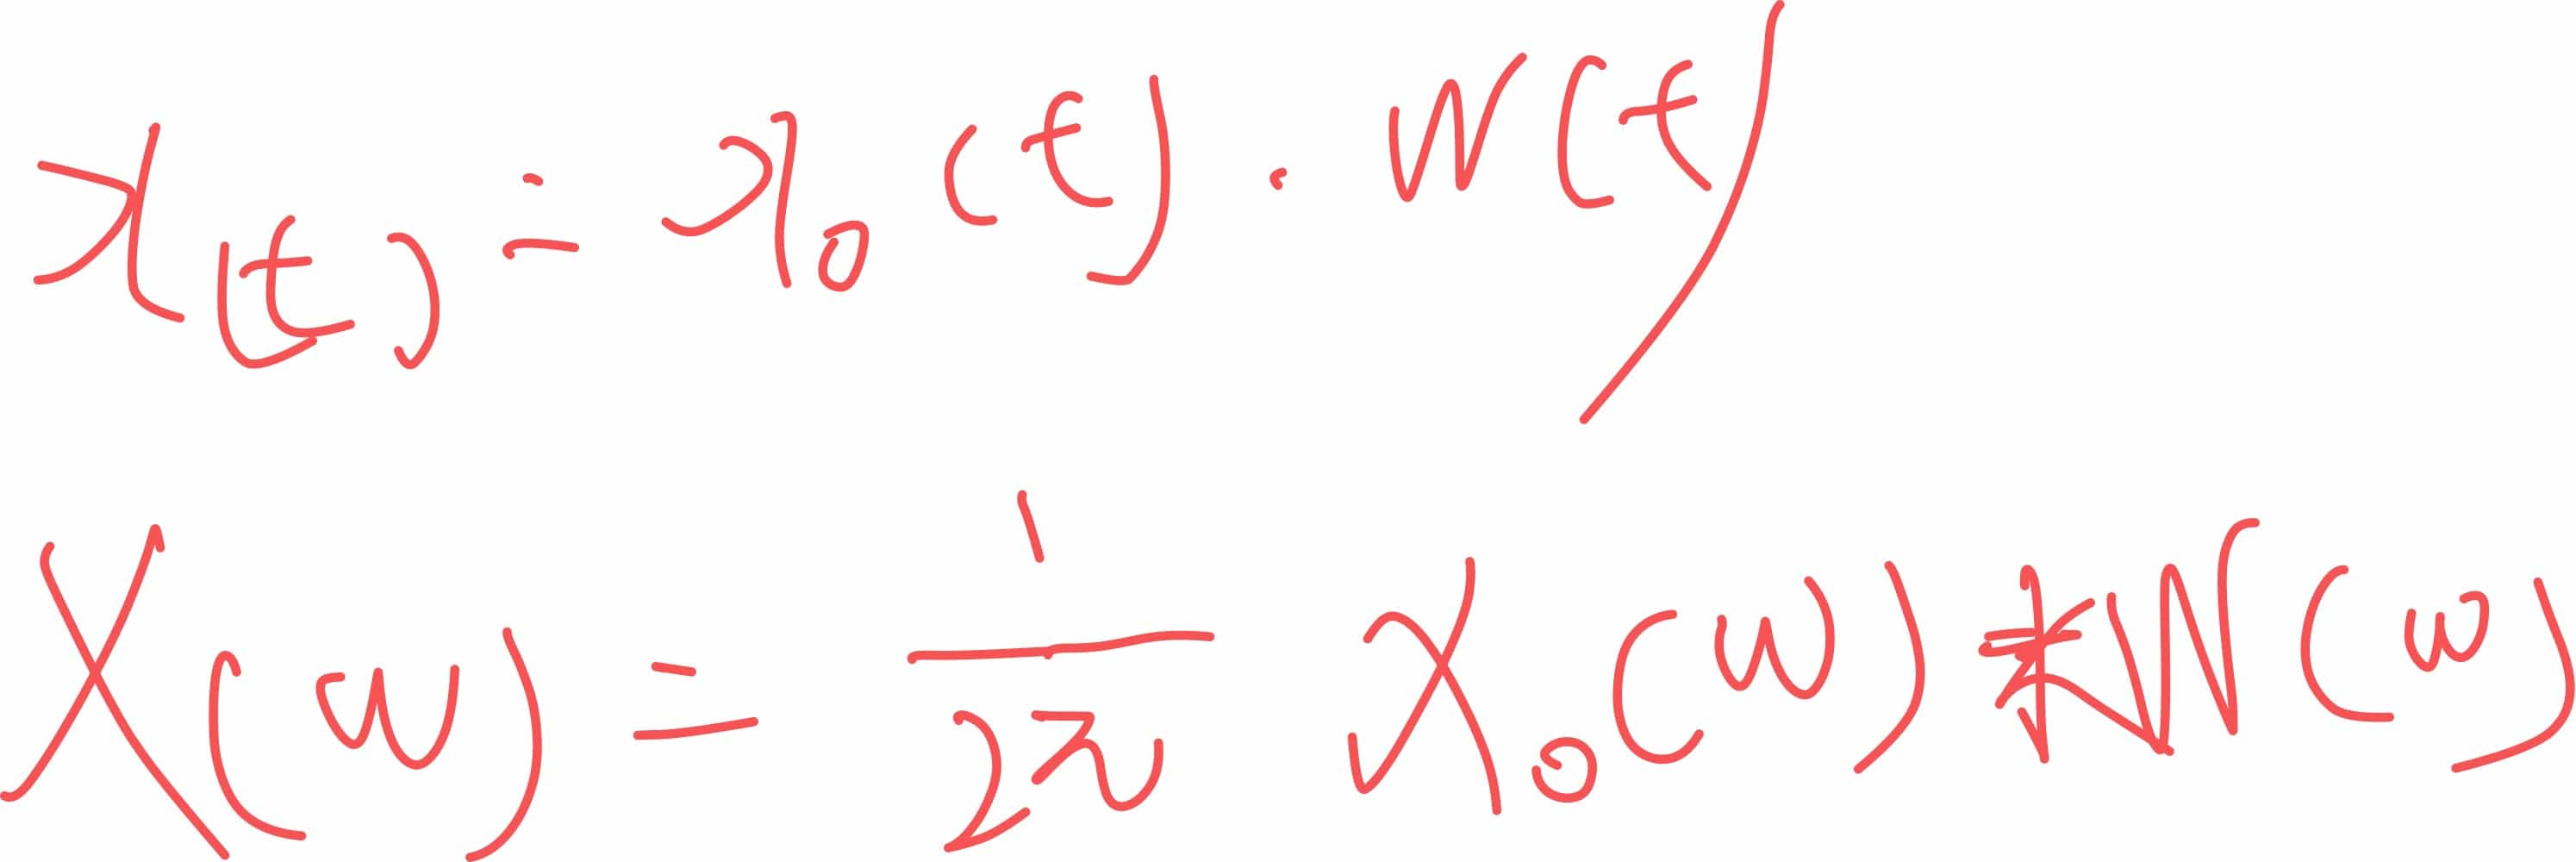 x(t) = x₀(t) · W(t)
X(ω) = 1/2π X₀(ω) * W(ω)